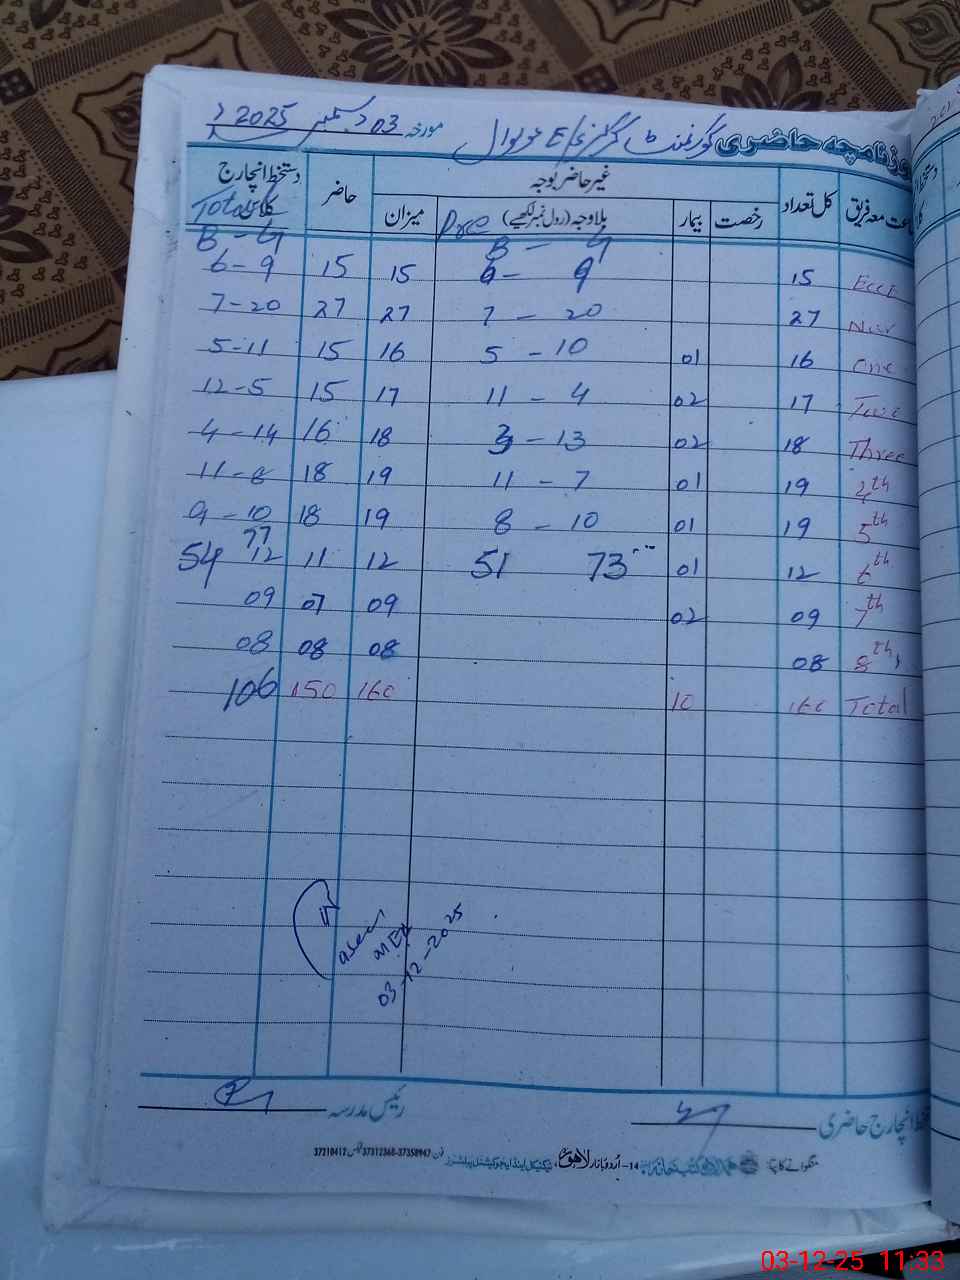 روزنامچہ حاضری گورنمنٹ گرلز E/S مورخہ 03 دسمبر 2025
جماعت معہ فریق کل تعداد غیر حاضر بوجہ حاضر دستخط انچارج کلاس
رخصت بیمار بلاوجہ (رول نمبر لکھیے) میزان Total
B - G B - G
ECCE 15 6 - 9 15 15 6-9
Nur 27 7 - 20 27 27 7-20
One 16 01 5 - 10 16 15 5-11
Two 17 02 11 - 4 17 15 12-5
Three 18 02 3 - 13 18 16 4-14
4th 19 01 11 - 7 19 18 11-8
5th 19 01 8 - 10 19 18 9-10
6th 12 01 51 73 12 11 12 77 54
7th 09 02 09 07 09
8th 08 08 08 08
Total 160 10 160 150 106
MEA
03-12-2025
دستخط انچارج حاضری رئیس مدرسہ
منگوانے کا پتہ: 14-اردو بازار لاہور، فون 37358947-37312368 فیکس 37210412
03-12-25 11:33